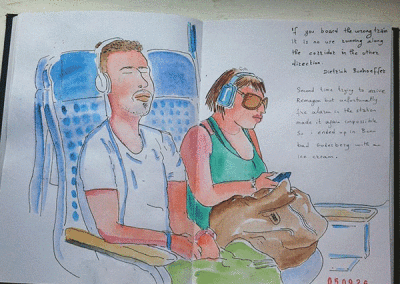 if you board the wrong train
it is no use running along
the corridor in the other
direction
Dietrich Bonhoeffer
Second time trying to
Remagen but unfortunately
the in the station
made it again impossible
So i ended up in
bad Godesberg with a
ice cream.